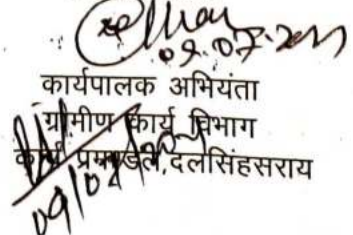 09.07.2011
कार्यपालक अभियंता
ग्रामीण कार्य विभाग
कार्य प्रमण्डल,दलसिंहसराय